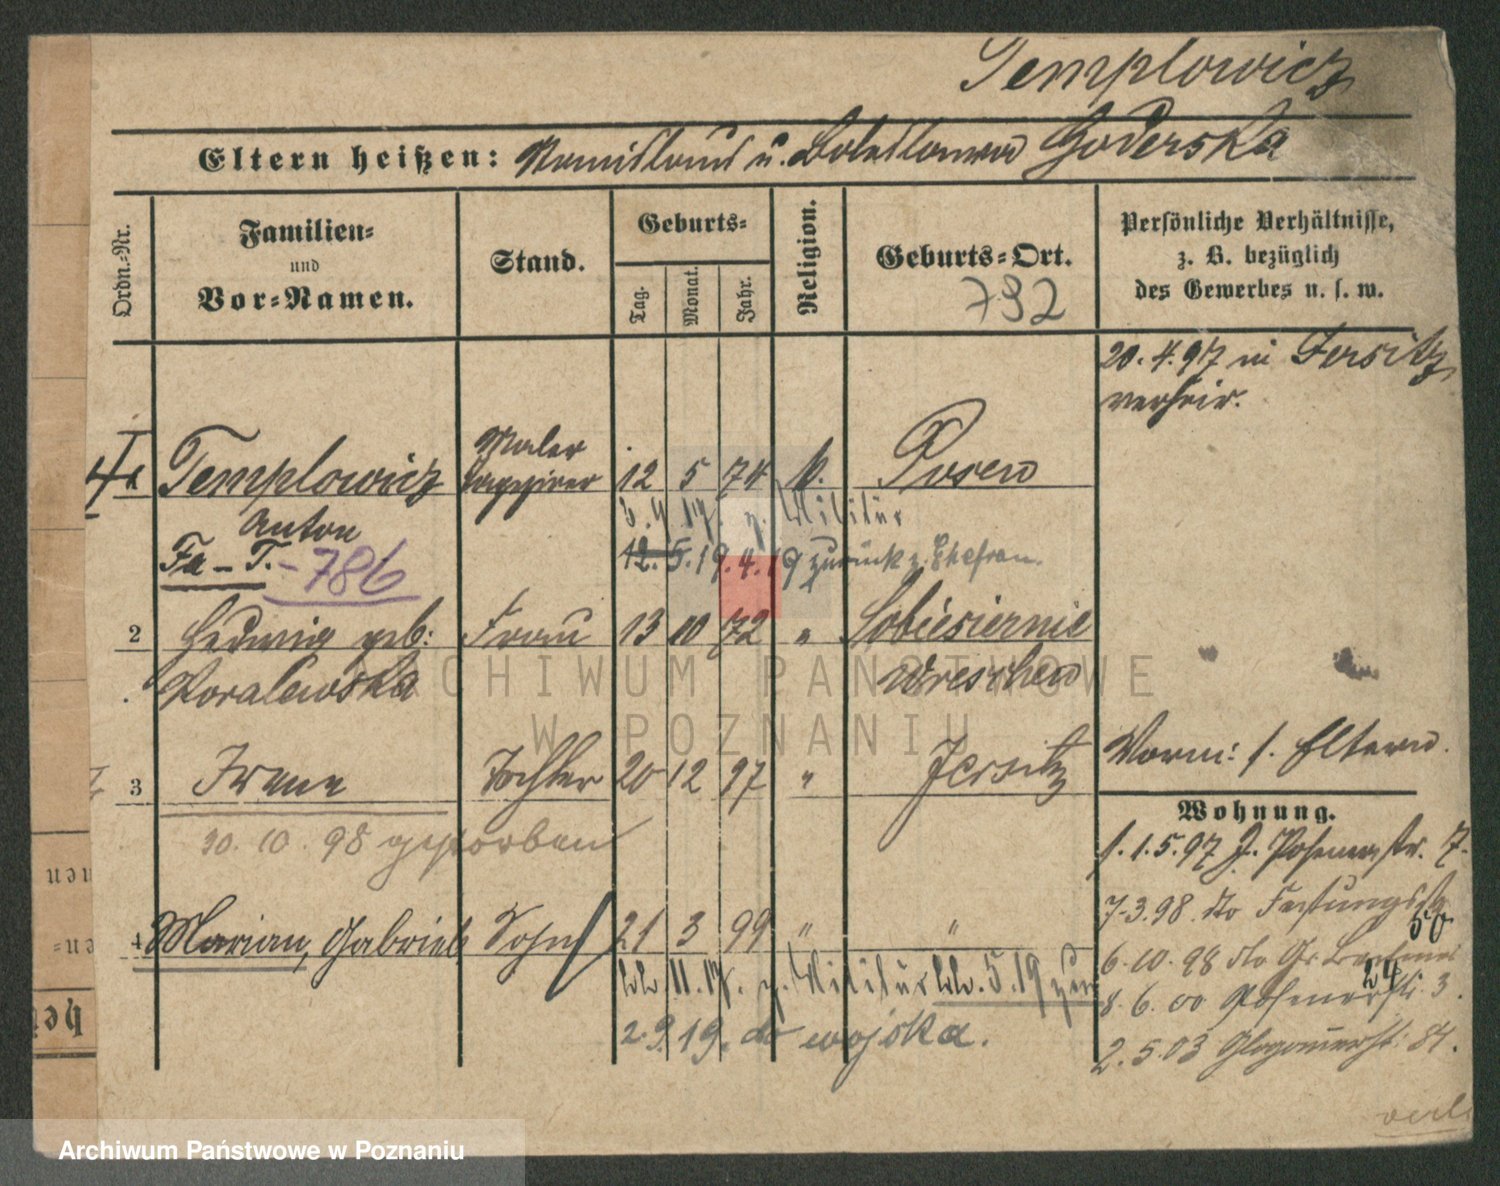 Templowicz
Eltern heißen: u. Boleslawa Goderska
Ordn.-Nr.
Familien-
und
Vor-Namen.
Stand.
Geburts-
Tag.
Monat.
Jahr.
Religion.
Geburts-Ort.
792
Persönliche Verhältnisse,
z. B. bezüglich
des Gewerbes u. s. w.
20.4.97 in Jersitz
verheir.
Maler
Templowicz Tapezirer 12 5 74 k. Posen
Anton
3.4.17. z. Militär
Fa - T. - 786
12.5.19.4.19 zurück z. Ehefrau.
2 Hedwig geb: Frau 13 10 72 " Sobiesiernie
Koralewska Wreschen
Vorm: s. Eltern.
3 Irene Tochter 20 12 97 " Jersitz
30.10.98 gestorben
Wohnung.
1.5.97 J. Posenerstr. 7.
7.3.98. dto Festungsstr
50
4 Marian, Gabriel Sohn 21 3 99 " "
6.10.98 dto Gr.
24
11.17. z. Militär 5.19
8.6.00 Posenerstr. 3.
2.9.19. do wojska.
2.5.03 Glogauerst: 84.
ARCHIWUM PAŃSTWOWE
W POZNANIU
Archiwum Państwowe w Poznaniu